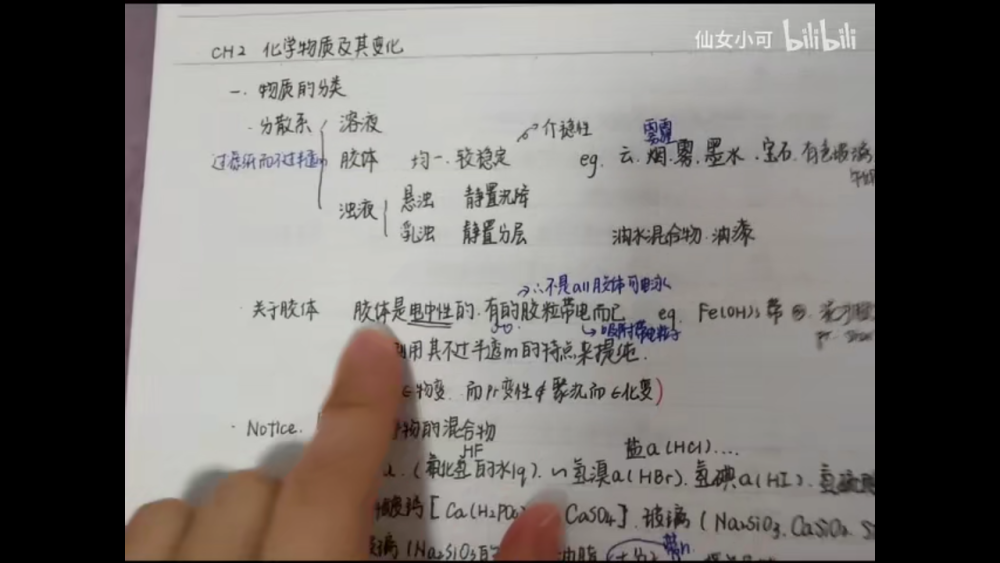 仙女小可 bilibili
CH2 化学物质及其变化
一. 物质的分类
· 分散系 溶液
介稳性
雾霾
过滤纸而不过半透m
胶体 均一. 较稳定 eg. 云. 烟. 雾. 墨水. 宝石. 有色玻璃
浊液 悬浊 静置沉降
乳浊 静置分层 油水混合物. 油漆
∴不是all胶体可电泳
· 关于胶体 胶体是电中性的. 有的胶粒带电而已 eg. Fe(OH)3 带⊕
吸附带电粒子
用其不过半透m的特点来提纯.
∈物变. 而pr变性∉聚沉而∈化变)
· Notice. 物的混合物
HF 盐a(HCl)....
(氟化氢的水lq). ~氢溴a(HBr). 氢碘a(HI). 氢硫
玻璃(Na2SiO3. CaSiO3. S
CaSO4].
(Na2SiO3的 油脂
带n